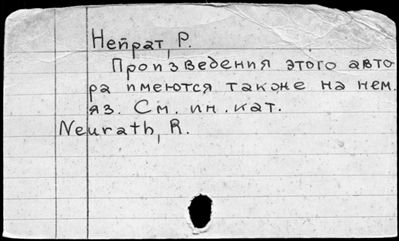 Нейрат, Р.
Произведения этого авто-
ра имеются также на нем.
яз. См. ин. кат.
Neurath, R.